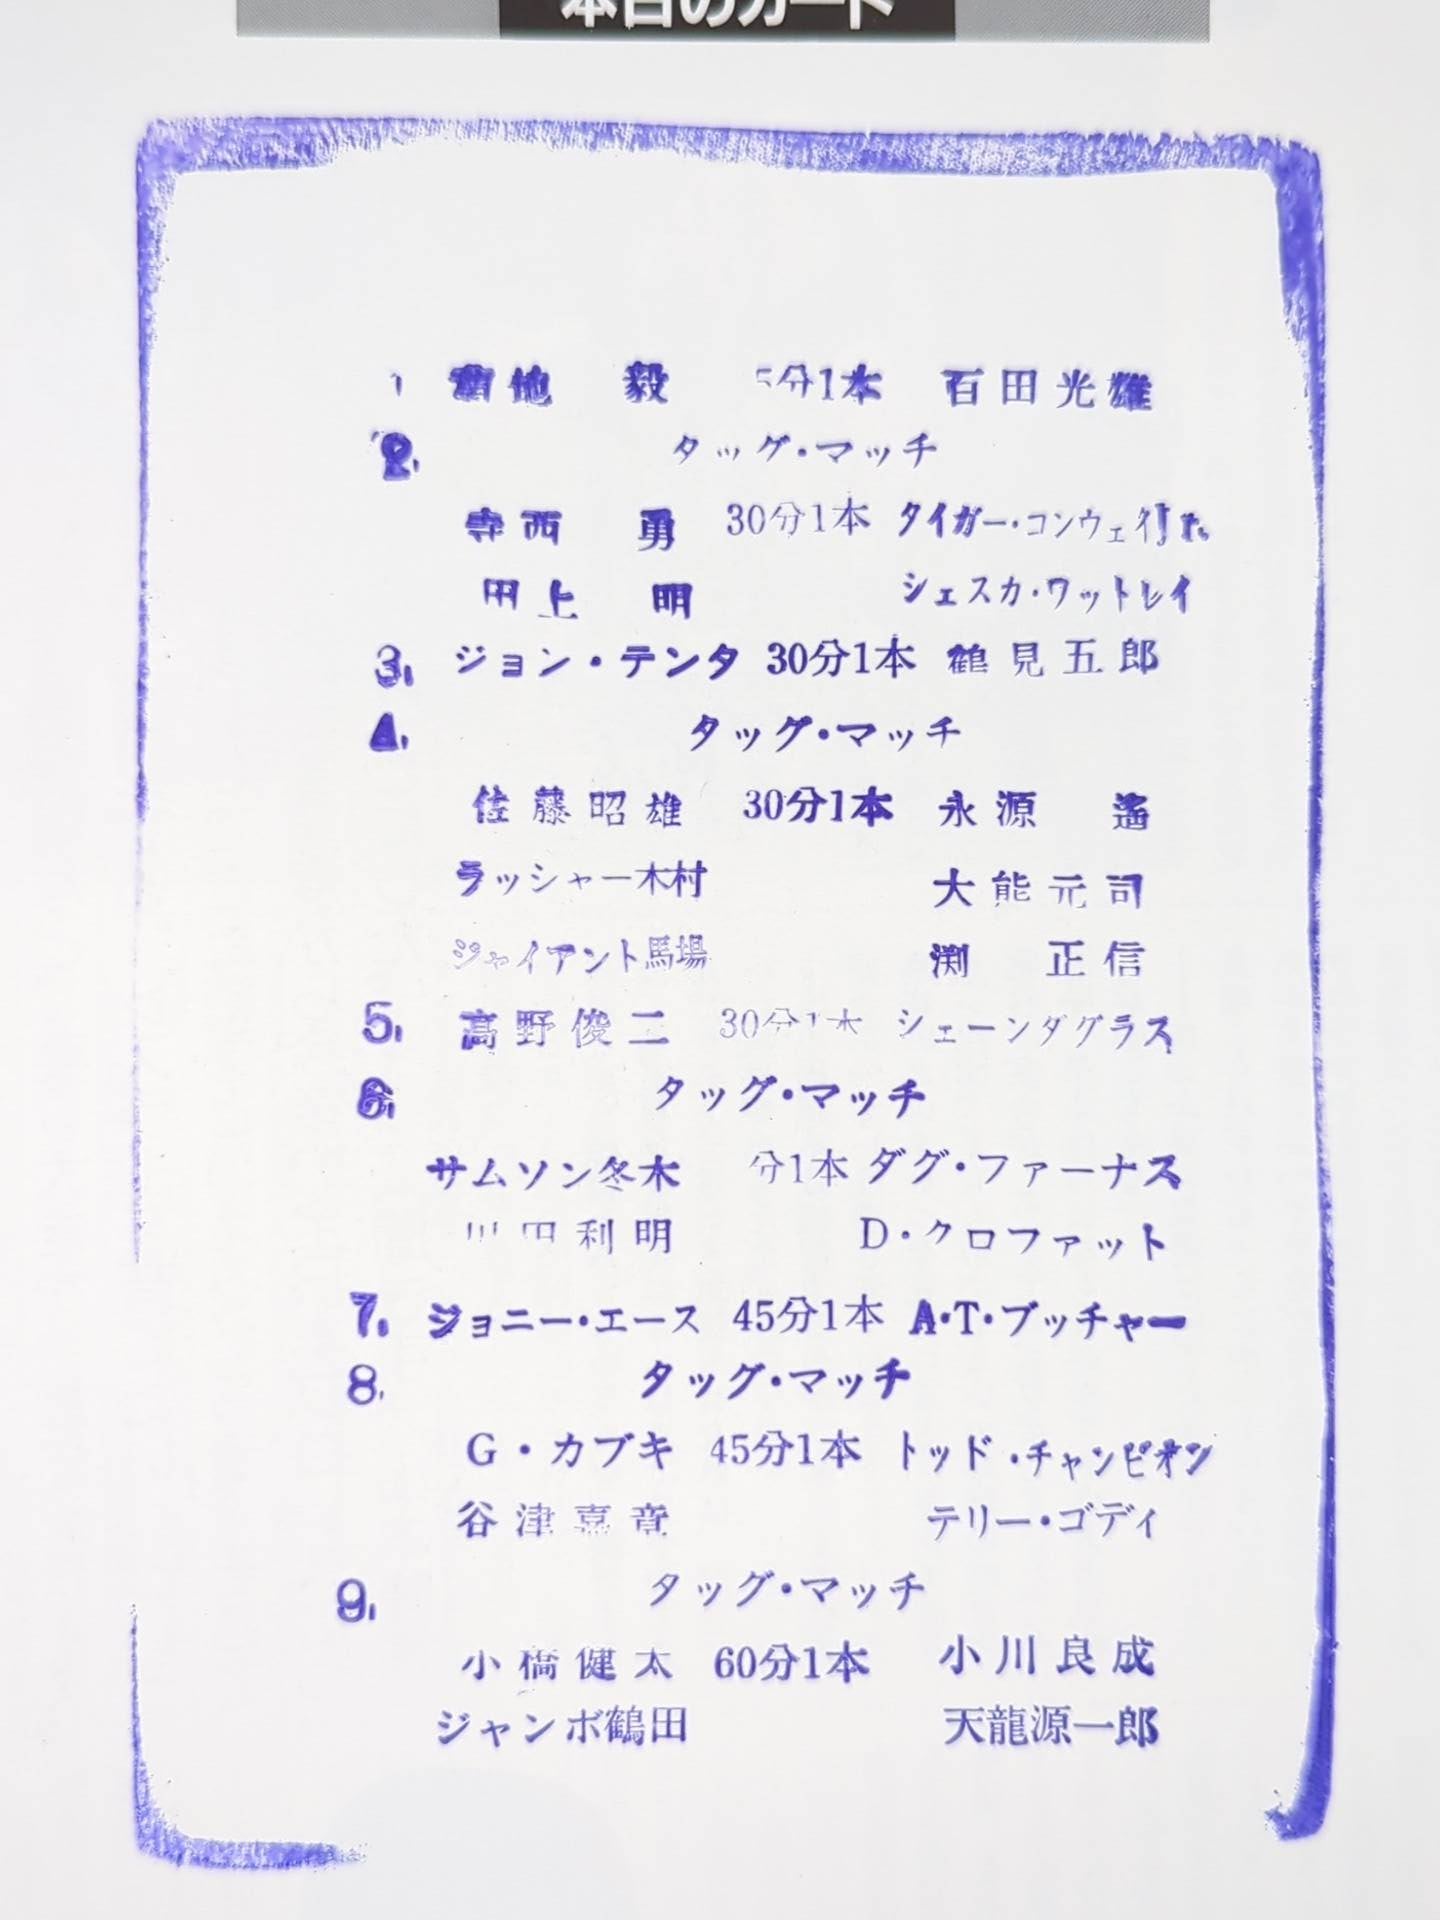 本日のカード
1 菊地 毅 5分1本 百田光雄
2. タッグ・マッチ
寺西 勇 30分1本 タイガー・コンウェイJr.
田上 明 シェスカ・ワットレイ
3. ジョン・テンタ 30分1本 鶴見五郎
4. タッグ・マッチ
佐藤昭雄 30分1本 永源 遙
ラッシャー木村 大熊元司
ジャイアント馬場 渕 正信
5. 高野俊二 30分1本 シェーンダグラス
6. タッグ・マッチ
サムソン冬木 分1本 ダグ・ファーナス
川田利明 D・クロファット
7. ジョニー・エース 45分1本 A・T・ブッチャー
8. タッグ・マッチ
G・カブキ 45分1本 トッド・チャンピオン
谷津嘉章 テリー・ゴディ
9. タッグ・マッチ
小橋健太 60分1本 小川良成
ジャンボ鶴田 天龍源一郎